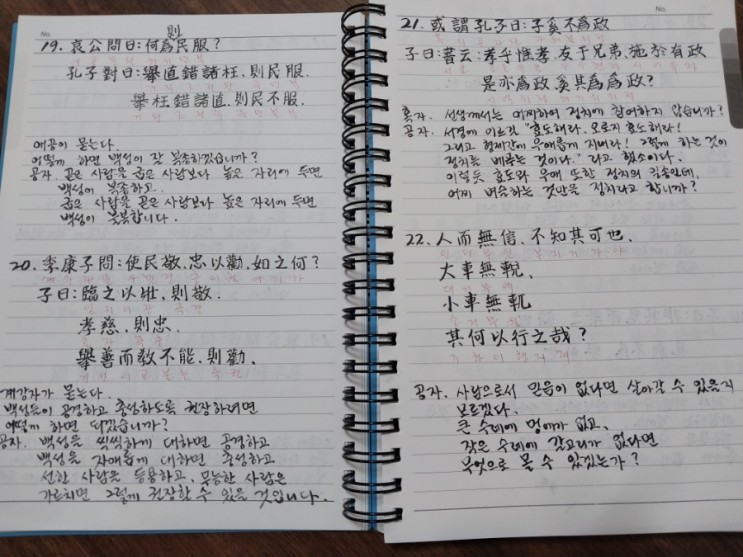 No.
則
19. 哀公問曰: 何爲民服?
孔子對曰: 舉直錯諸枉, 則民服.
舉枉錯諸直, 則民不服.
애공이 묻는다.
어떻게 하면 백성이 잘 복종하겠습니까?
공자. 곧은 사람을 굽은 사람보다 높은 자리에 두면
백성이 복종하고.
굽은 사람을 곧은 사람보다 높은 자리에 두면
백성이 불복합니다.
20. 季康子問: 使民敬, 忠以勸, 如之何?
子曰: 臨之以壯, 則敬.
孝慈, 則忠.
舉善而敎不能, 則勸.
계강자가 묻는다.
백성들이 공경하고 충성하도록 권장하려면
어떻게 하면 되겠습니까?
공자. 백성을 씩씩하게 대하면 공경하고
백성을 자애롭게 대하면 충성하고
선한 사람을 등용하고, 무능한 사람은
가르치면 그렇게 권장할 수 있을 것입니다.
No.
21. 或謂孔子曰: 子奚不爲政
子曰: 書云: 孝乎惟孝, 友于兄弟, 施於有政
是亦爲政, 奚其爲爲政?
혹자. 선생께서는 어찌하여 정치에 참여하지 않습니까?
공자. 서경에 이르길 "효도해라, 오로지 효도해라!
그리고 형제간에 우애롭게 지내라! 그렇게 하는 것이
정치를 베푸는 것이다." 라고 했소이다.
이렇듯 효도와 우애 또한 정치의 길인데,
어찌 벼슬하는 것만을 정치라고 합니까?
22. 人而無信, 不知其可也.
大車無輗,
小車無軏
其何以行之哉?
공자. 사람으로서 믿음이 없다면 살아갈 수 있을지
모르겠다.
큰 수레에 멍에가 없고,
작은 수레에 갈고리가 없다면
무엇으로 몰 수 있겠는가?